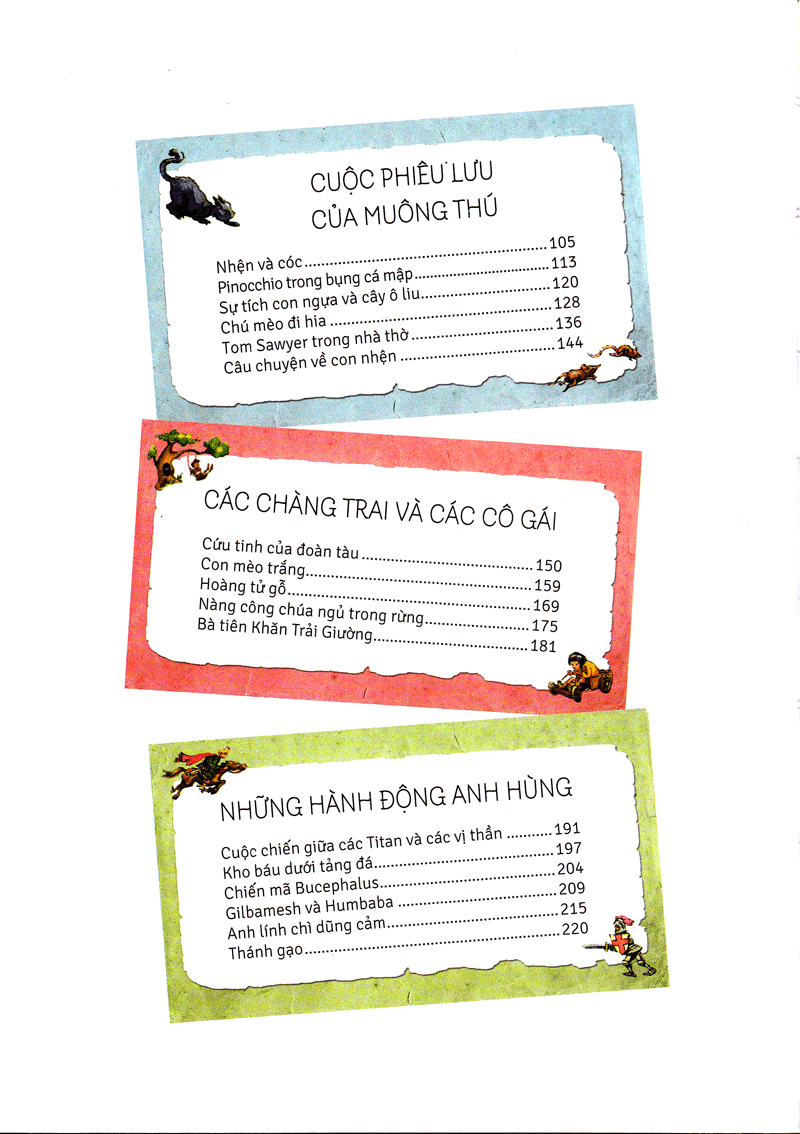 CUỘC PHIÊU LƯU
CỦA MUÔNG THÚ
Nhện và cóc........................................................105
Pinocchio trong bụng cá mập...............................113
Sự tích con ngựa và cây ô liu.............................120
Chú mèo đi hia ..................................................128
Tom Sawyer trong nhà thờ................................136
Câu chuyện về con nhện ...................................144
CÁC CHÀNG TRAI VÀ CÁC CÔ GÁI
Cứu tinh của đoàn tàu ......................................150
Con mèo trắng..................................................159
Hoàng tử gỗ......................................................169
Nàng công chúa ngủ trong rừng.......................175
Bà tiên Khăn Trải Giường..................................181
NHỮNG HÀNH ĐỘNG ANH HÙNG
Cuộc chiến giữa các Titan và các vị thần ..........191
Kho báu dưới tảng đá........................................197
Chiến mã Bucephalus.......................................204
Gilbamesh và Humbaba ...................................209
Anh lính chì dũng cảm......................................215
Thánh gạo........................................................220